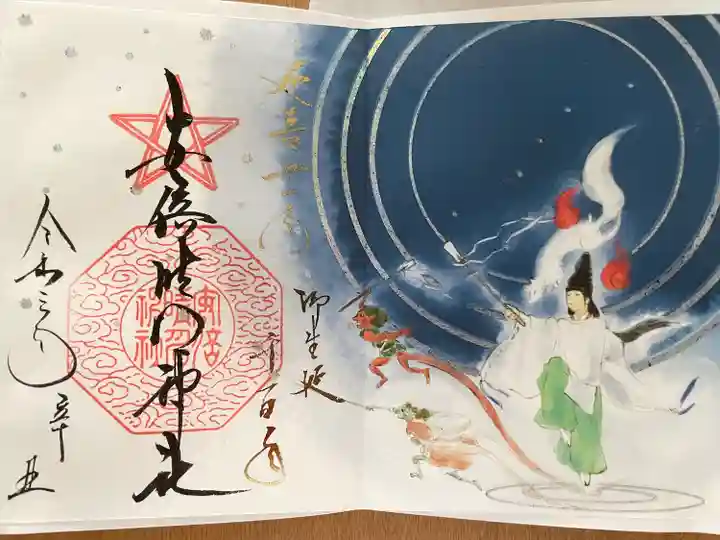 御生誕
千百年
安倍晴明神社
安倍
晴明
神社
令和三年 辛丑